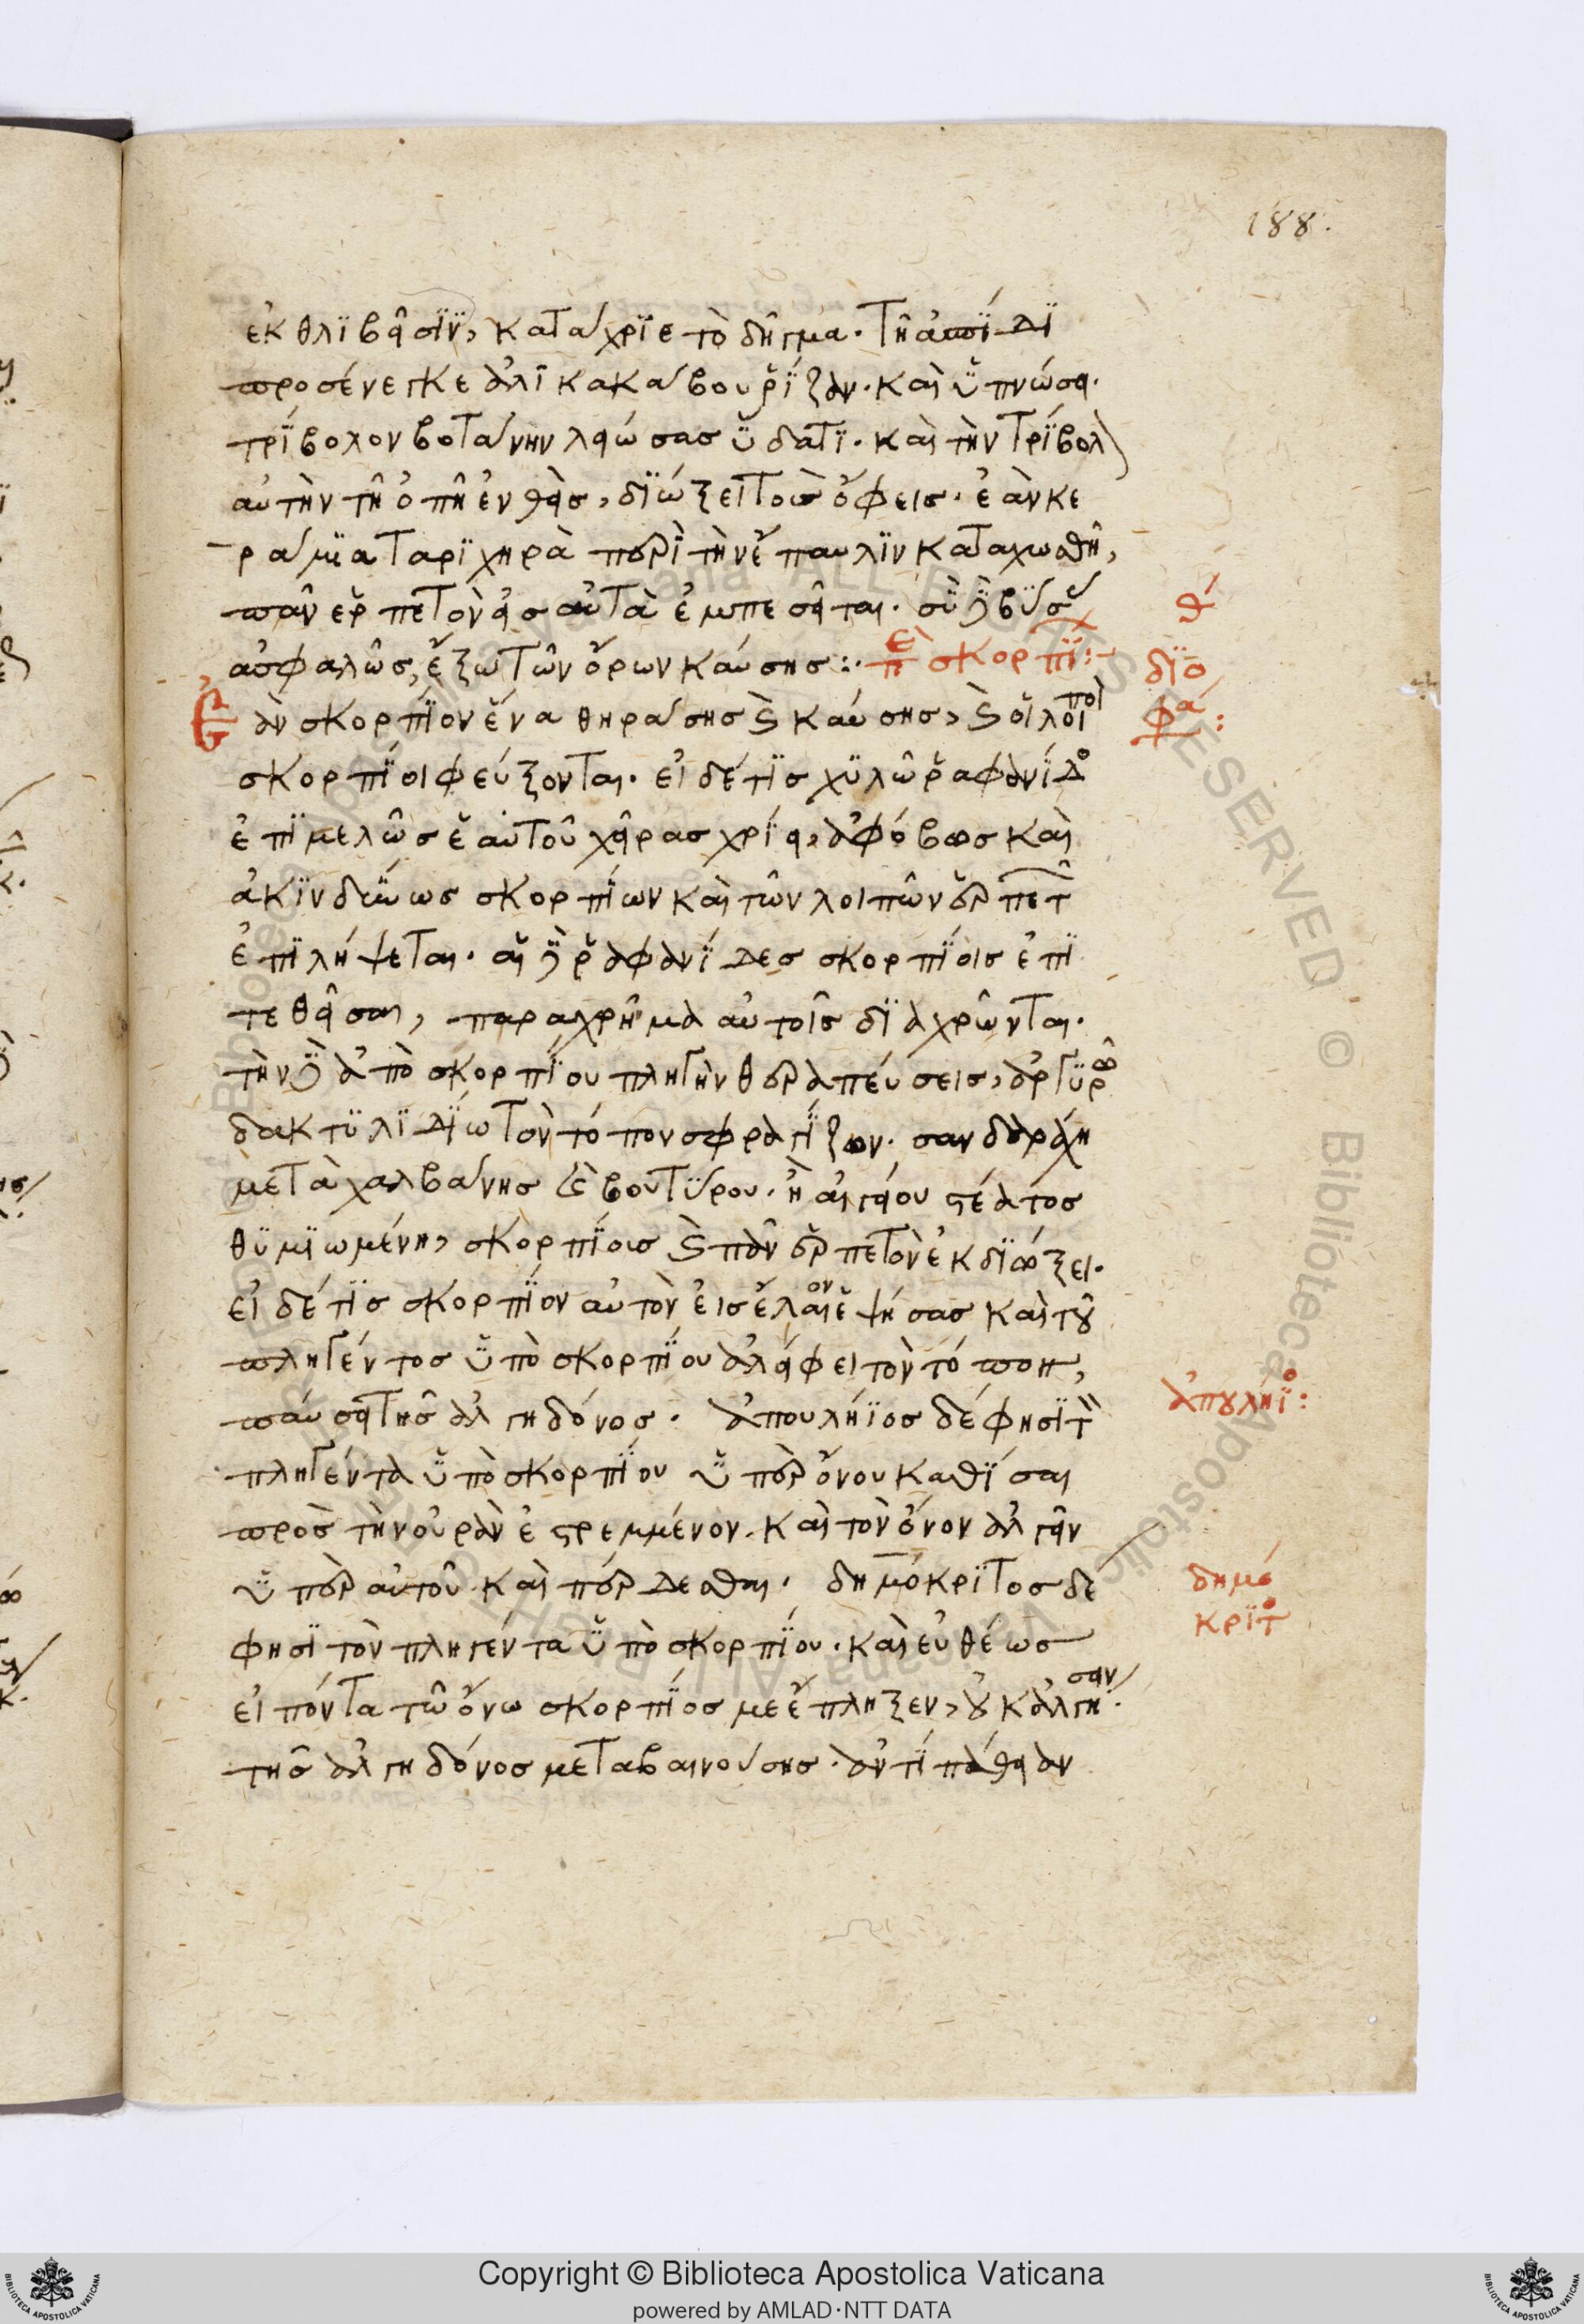 188.
ἐκθλιβεῖσιν, κατάχριε τὸ δῆγμα. τῆ ἀσπίδι
προσένεγκε ἁλικακάβου ῥίζαν. καὶ ὑπνώσει.
τρίβολον βοτάνην λειώσας ὕδατι. καὶ τὴν τρίβολ
αὐτὴν τῆ ὀπῆ ἐνθεὶς, διώξει τοὺς ὄφεις. ἐὰν κε
ράμια ταριχηρὰ περὶ τὴν ἔπαυλιν καταχωσθῆ,
πᾶν ἑρπετὸν εἰς αὐτὰ ἐμπεσεῖται. σὺ δὲ βύσ
ἀσφαλῶς, ἔξω τῶν ὅρων καύσης:. πε σκορπί:-
Ἐὰν σκορπίον ἕνα θηράσης καὶ καύσης, καὶ οἱ λοιποὶ
σκορπίοι φεύξονται. εἰ δέ τις χυλῶ ῥαφανίδο
ἐπιμελῶς ἑαυτοῦ χεῖρας χρίει, ἀφόβως καὶ
ἀκινδύνως σκορπίων καὶ τῶν λοιπῶν ἑρπετ
ἐπιλήψεται. αἱ δὲ ῥαφανίδες σκορπίοις ἐπι
τεθεῖσαι, παραχρῆμα αὐτοῖς διαχρῶνται.
τὴν δὲ ἀπὸ σκορπίου πληγὴν θεραπεύσεις, ἀργυρῶ
δακτυλιδίω τὸν τόπον σφραγίζων. σανδαράχη
μετὰ χαλβάνης καὶ βουτύρου. ἢ αἰγείου στέατος
θυμιωμένη, σκορπίους καὶ πᾶν ἑρπετὸν ἐκδιώξει.
εἰ δέ τις σκορπίον αὐτὸν εἰς ἔλαιον ἑψήσας καὶ τοῦ
πληγέντος ὑπὸ σκορπίου ἀλείφει τὸν τόπον,
παύσει τῆς ἀλγηδόνος. ἀπουλήιος δέ φησι τὸν
πληγέντα ὑπὸ σκορπίου ὕπερ ὄνου καθίσαι
πρὸς τὴν οὐρὰν ἐστρεμμένον. καὶ τὸν ὄνον ἀλγεῖν
ὕπερ αὐτοῦ καὶ πέρδεσθαι. δημόκριτος δέ
φησι τὸν πληγέντα ὑπὸ σκορπίου. καὶ εὐθέως
εἰπόντα τῶ ὄνω σκορπίος με ἔπληξεν, οὐκ ἀλγῆσαι.
τῆς ἀλγηδόνος μεταβαινούσης. ἀντιπάθειαν
θ
διο
φά:
ἀπουλήϊο:
δημό
κριτο
Copyright © Biblioteca Apostolica Vaticana
powered by AMLAD·NTT DATA